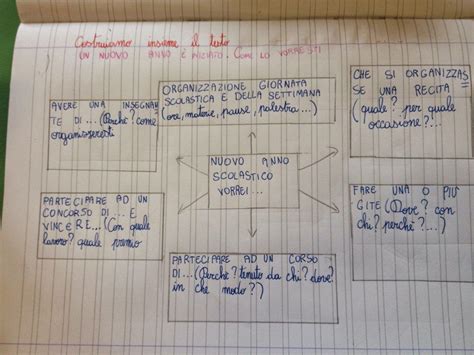 Costruiamo insieme il testo
UN NUOVO ANNO È INIZIATO. COME LO VORRESTI
ORGANIZZAZIONE GIORNATA
SCOLASTICA E DELLA SETTIMANA
(ore, materie, pause, palestra...)
CHE SI ORGANIZZAS
SE UNA RECITA
(quale? per quale
occasione?...
AVERE UNA INSEGNAN
TE DI...(Perché? come
organizzeresti
NUOVO ANNO
SCOLASTICO
VORREI...
PARTECIPARE AD UN
CONCORSO DI... E
VINCERE...(Con quale
lavoro? quale premio
FARE UNA O PIÙ
GITE (Dove? con
chi? perché?...)
PARTECIPARE AD UN CORSO
DI...(Perché? tenuto da chi? dove?
in che modo?)